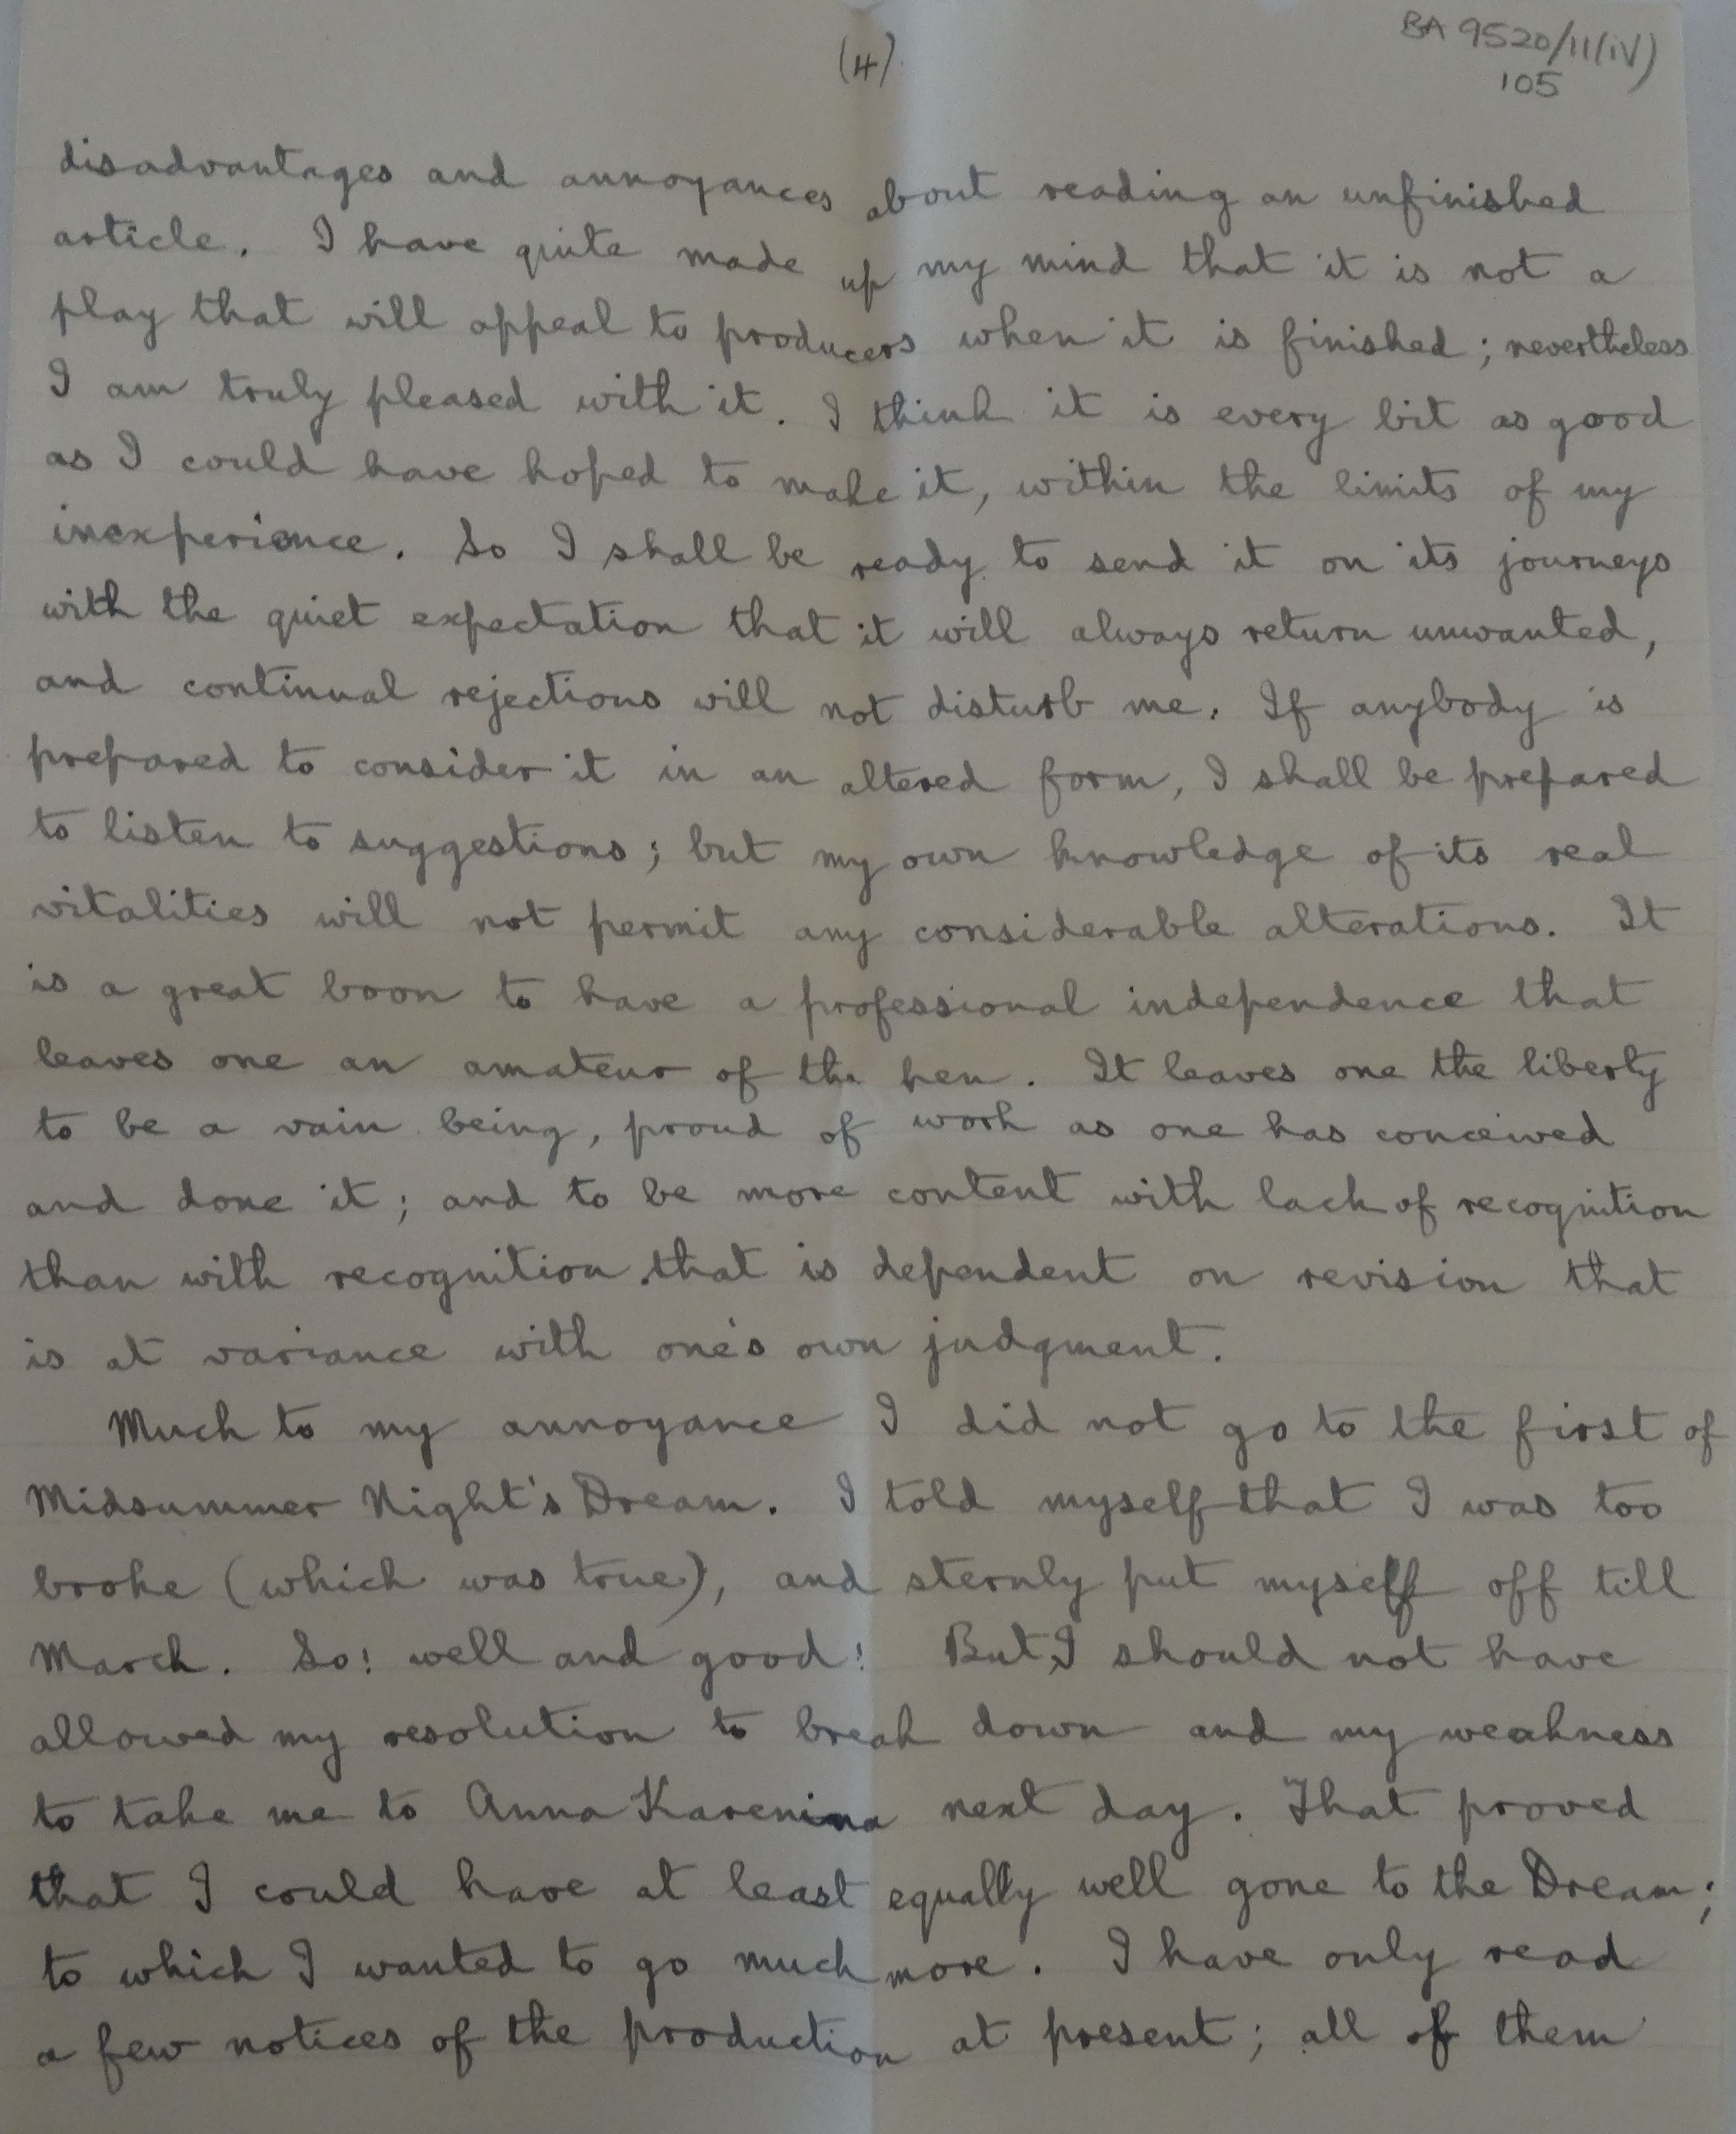 (4)
BA 9520/11/(iV)
105
disadvantages and annoyances about reading an unfinished
article. I have quite made up my mind that it is not a
play that will appeal to producers when it is finished; nevertheless
I am truly pleased with it. I think it is every bit as good
as I could have hoped to make it, within the limits of my
inexperience. So I shall be ready to send it on its journeys
with the quiet expectation that it will always return unwanted,
and continual rejections will not disturb me. If anybody is
prepared to consider it in an altered form, I shall be prepared
to listen to suggestions; but my own knowledge of its real
vitalities will not permit any considerable alterations. It
is a great boon to have a professional independence that
leaves one an amateur of the pen. It leaves one the liberty
to be a vain being, proud of work as one has conceived
and done it; and to be more content with lack of recognition
than with recognition that is dependent on revision that
is at variance with one's own judgment.
Much to my annoyance I did not go to the first of
Midsummer Night's Dream. I told myself that I was too
broke (which was true), and sternly put myself off till
March. So! well and good! But, I should not have
allowed my resolution to break down and my weakness
to take me to Anna Karenina next day. That proved
that I could have at least equally well gone to the Dream;
to which I wanted to go much more. I have only read
a few notices of the production at present; all of them